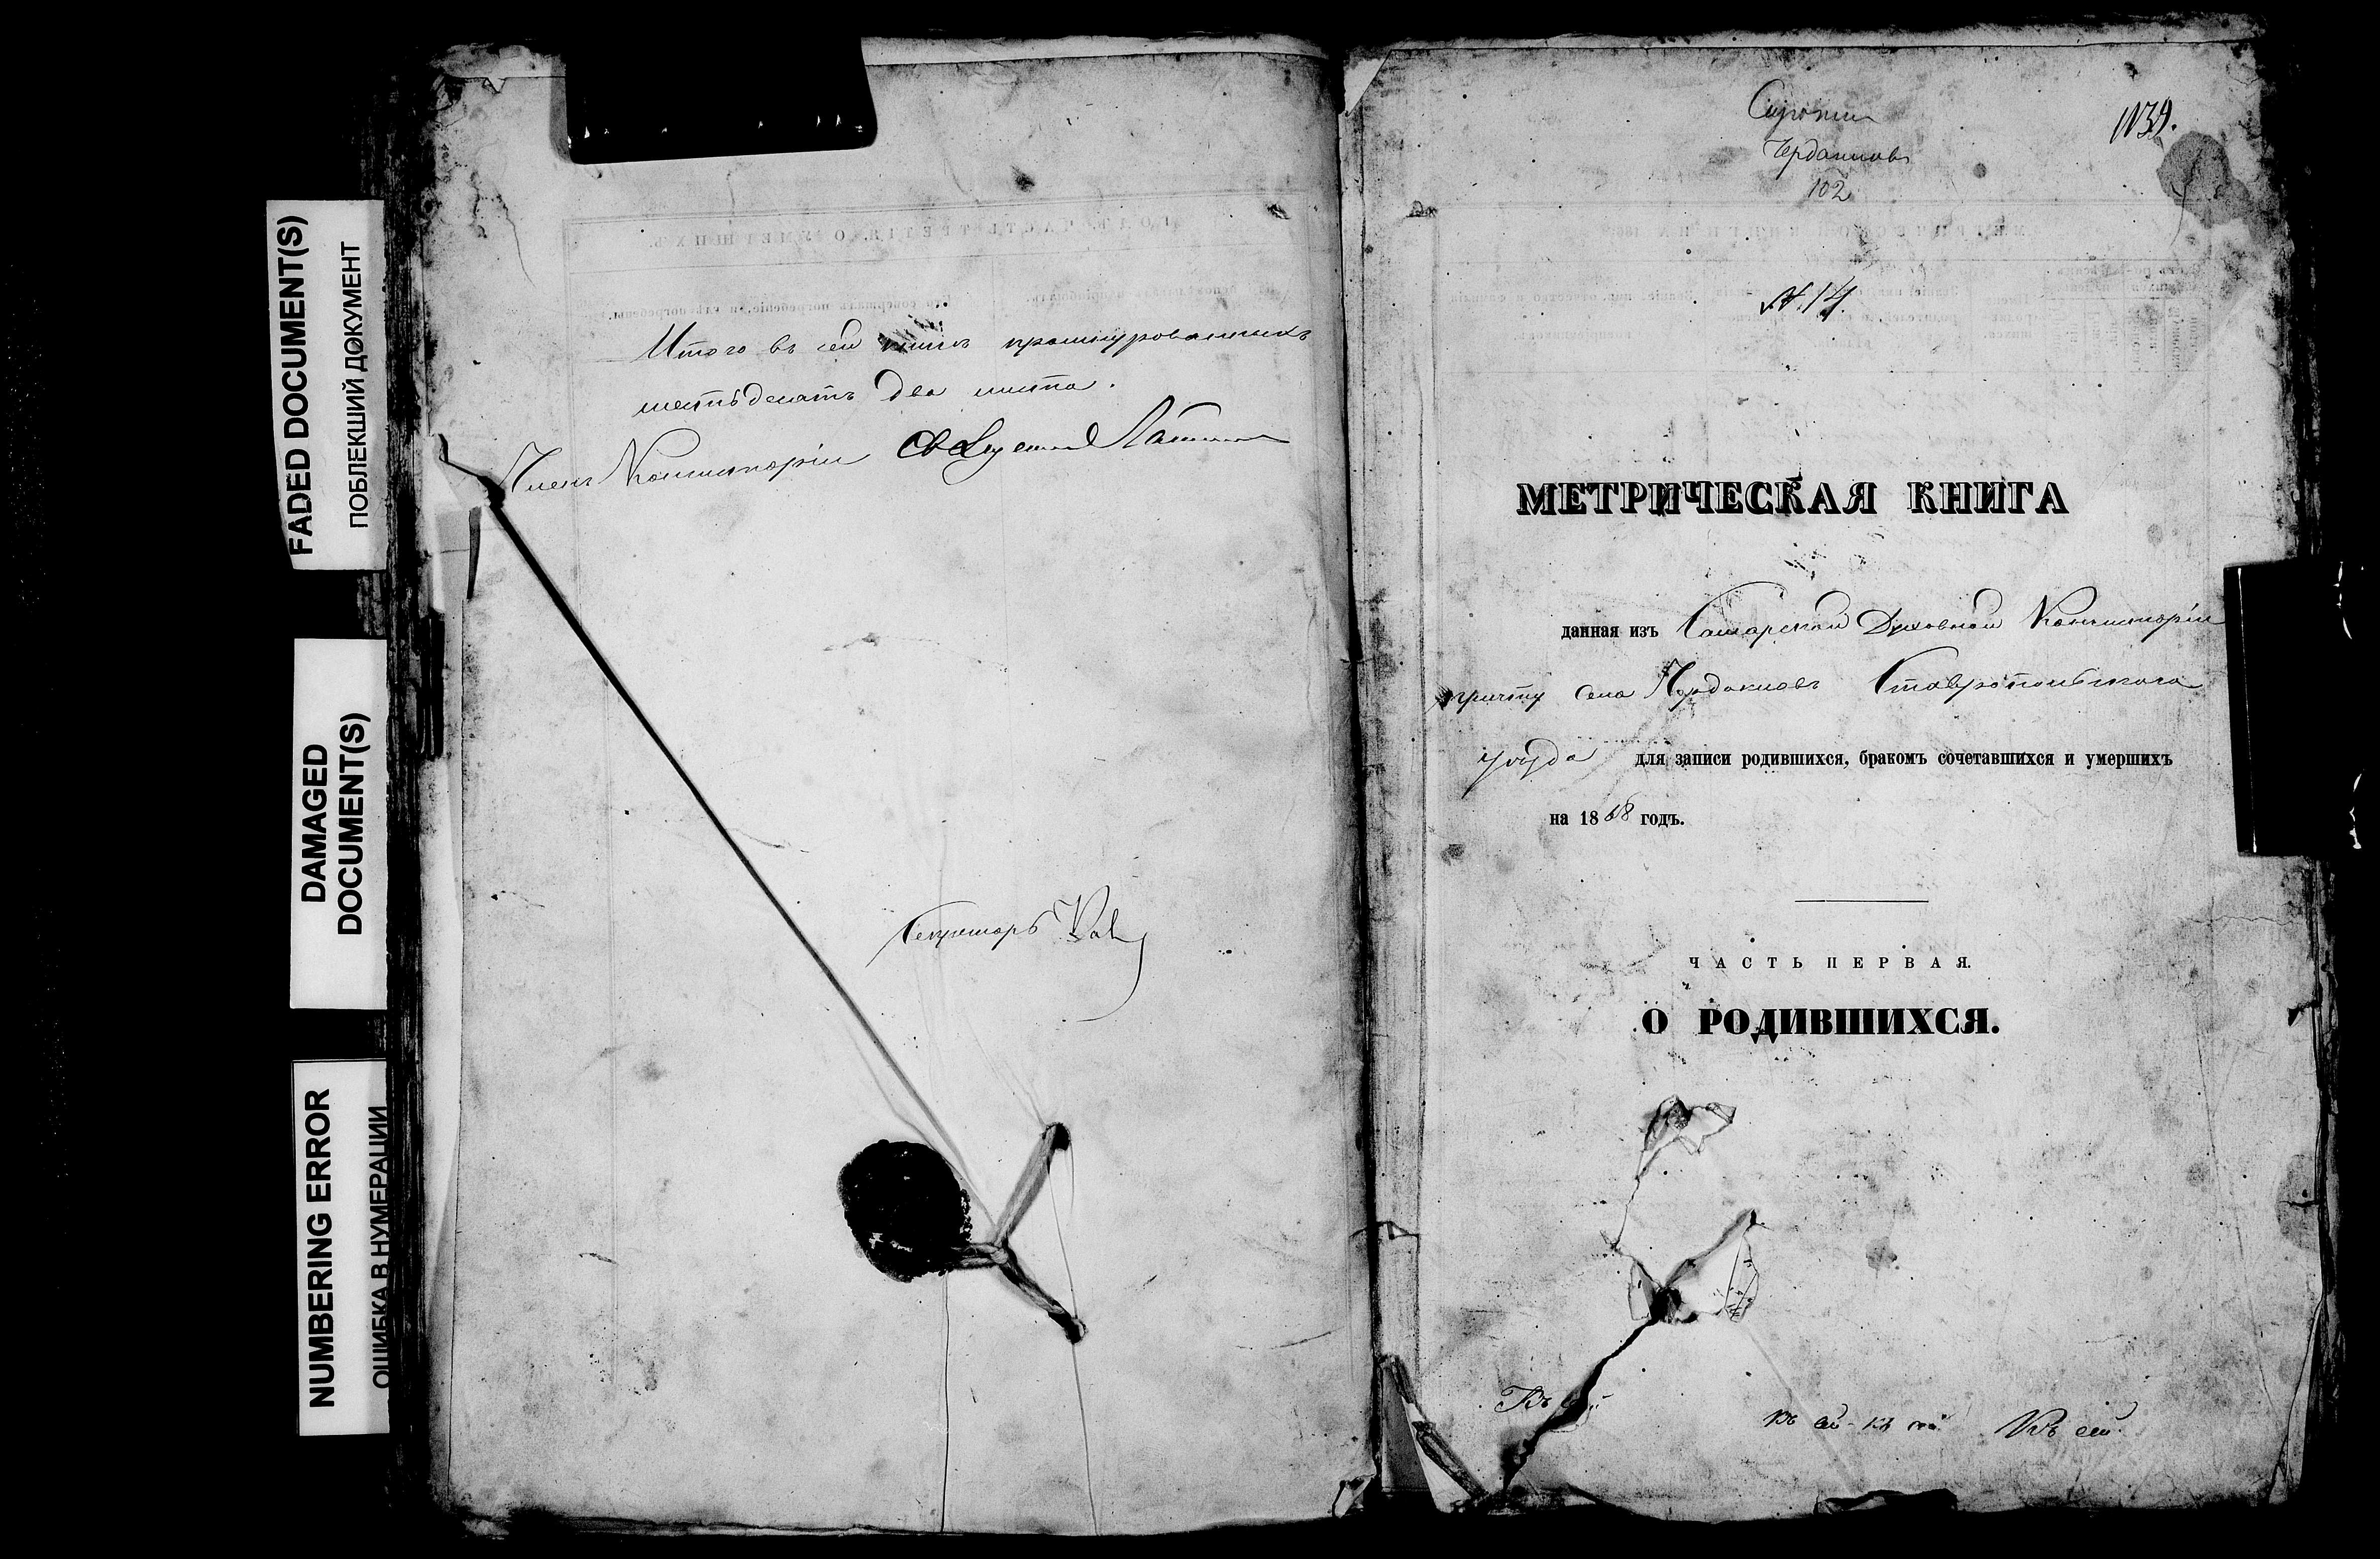 FADED DOCUMENT(S)
ПОБЛЕКШИЙ ДОКУМЕНТ
DAMAGED
DOCUMENT(S)
NUMBERING ERROR
ОШИБКА В НУМЕРАЦИИ
Итого въ сей книгѣ прошнурованныхъ
шестьдесятъ два листа.
Членъ Консисторіи
Секретарь
Чердаклов
102
№ 14.
МЕТРИЧЕСКАЯ КНИГА
данная изъ Самарской Духовной Консисторіи
причту села Чердаковъ Ставропольскаго
уѣзда для записи родившихся, бракомъ сочетавшихся и умершихъ
на 1868 годъ.
ЧАСТЬ ПЕРВАЯ.
О РОДИВШИХСЯ.
Въ
къ сей
Къ сей